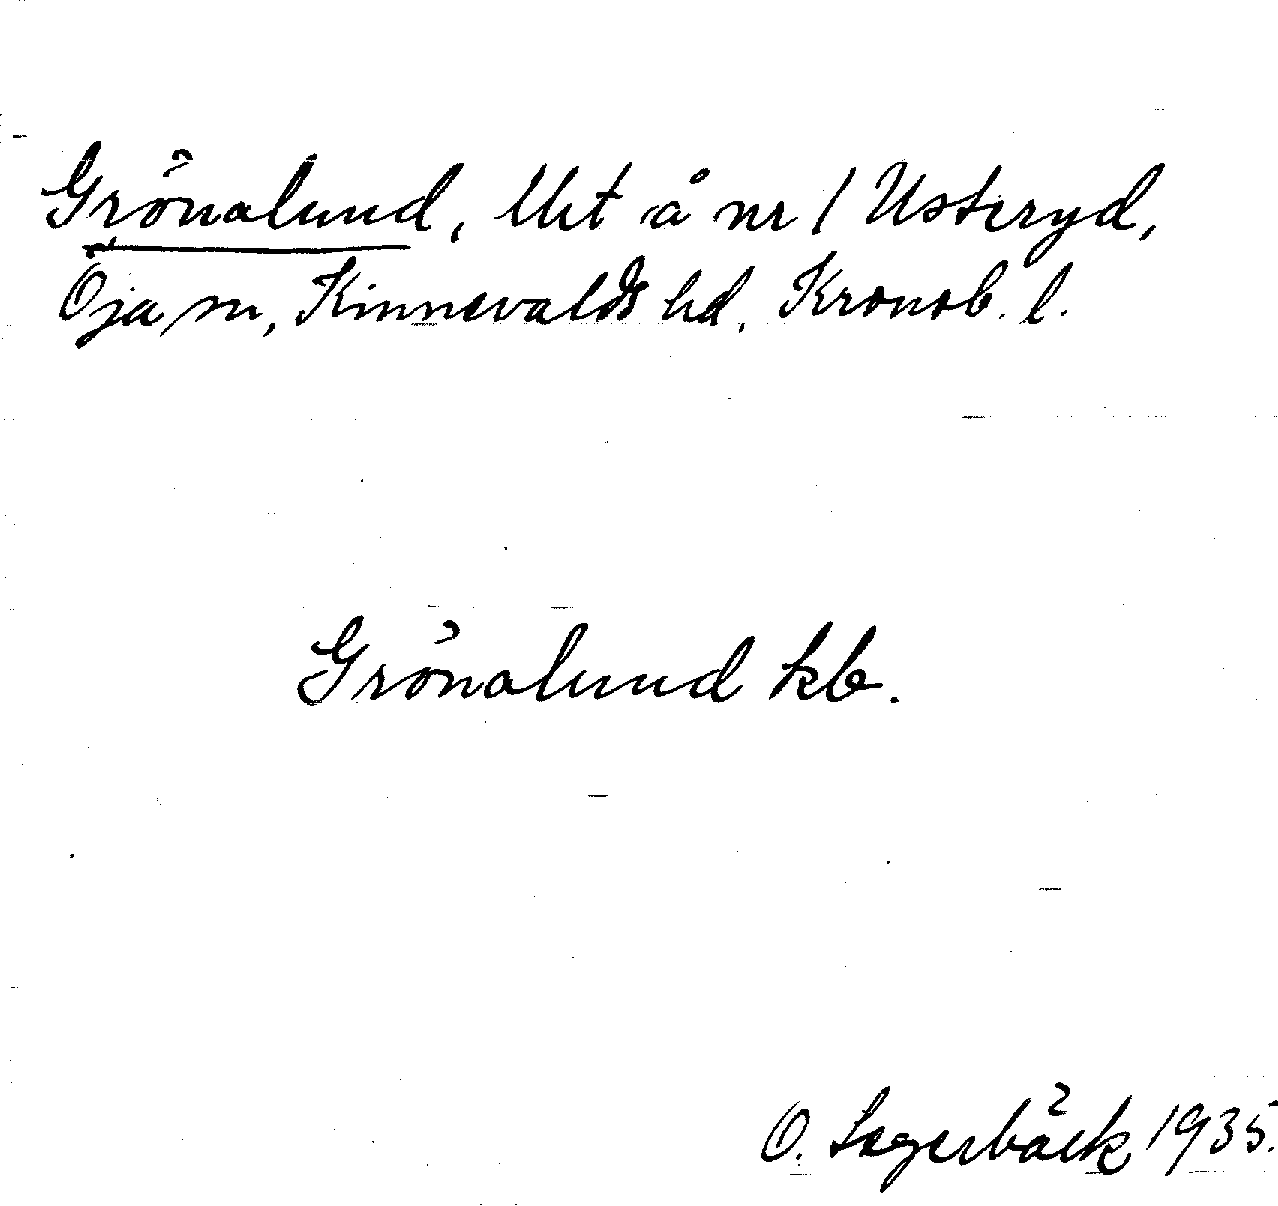 Grönalund, lht å nr 1 Usteryd,
Öja sn, Kinnevalds hd, Kronob. l.
Grönalund kb.
O. Lagerbäck 1935.